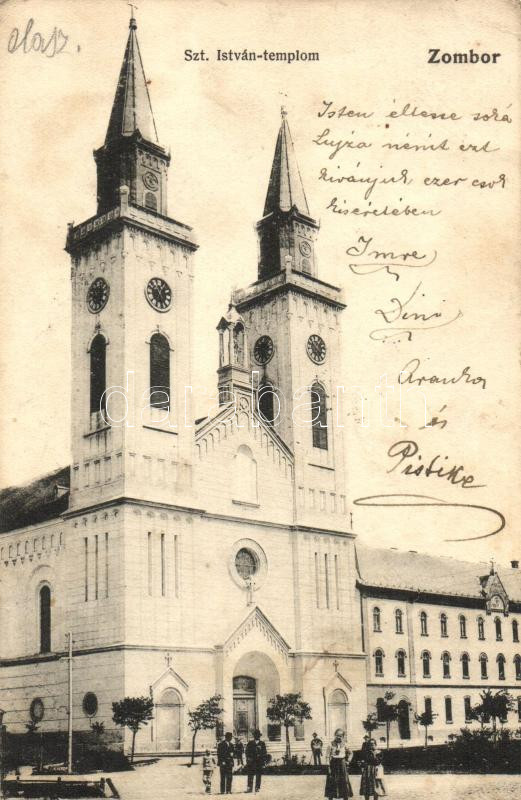 Szt. István-templom
Zombor
Isten éltesse soká
Lujza nénit ezt
kivánjuk ezer csók
kiséretében
Imre
Dini
Aranka
és
Pistike
darabanth